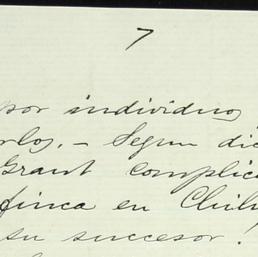 7
por individuos
rlos. - Segun dic
Grant complica
finca en Chihu
su sucesor!